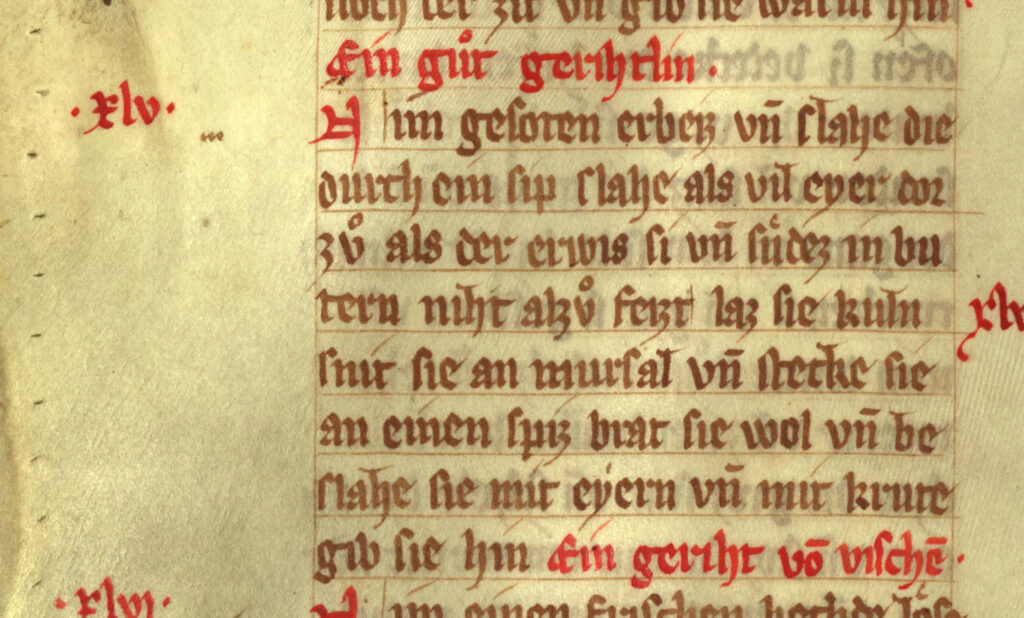 noch ter zit vn̄ gib sie warm hin
Ein gůt gerihtlin·
·xlv·
Nim gesoten erbeiz vn̄ slahe die
durch ein sip slahe als vil eyer dor
zů als der erwis si vn̄ sűdez in bu
tern niht alzů feizt laz sie kůln
snit sie an mursal vn̄ stecke sie
an einen spiz brat sie wol vn̄ be
slahe sie mit eyern vn̄ mit krute
gib sie hin Ein geriht vō vischē·
·xlvi·
Nim einen frischen